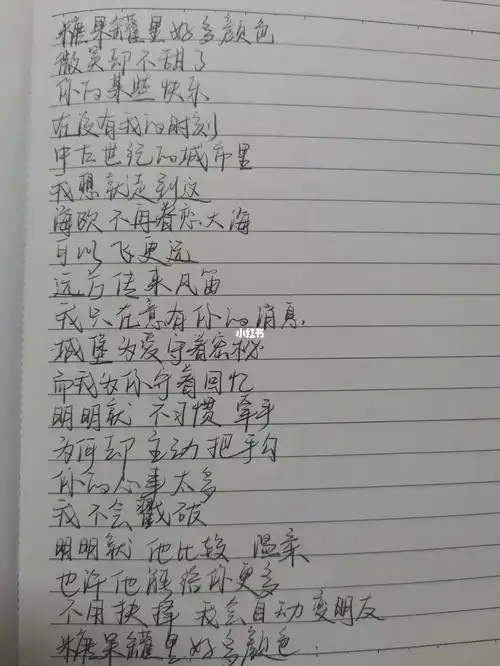 糖果罐里好多颜色
微笑却不甜了
你的某些快乐
在没有我的时刻
中古世纪的城市里
我想就走到这
海欧不再眷恋大海
可以飞更远
远方传来风笛
我只在意有你的消息
城堡为爱守着秘密
而我为你守着回忆
明明就 不习惯 牵手
为何却 主动把手勾
你的心事太多
我不会戳破
明明就 他比较 温柔
也许他能给你更多
不用抉择 我会自动变朋友
糖果罐里好多颜色
小红书